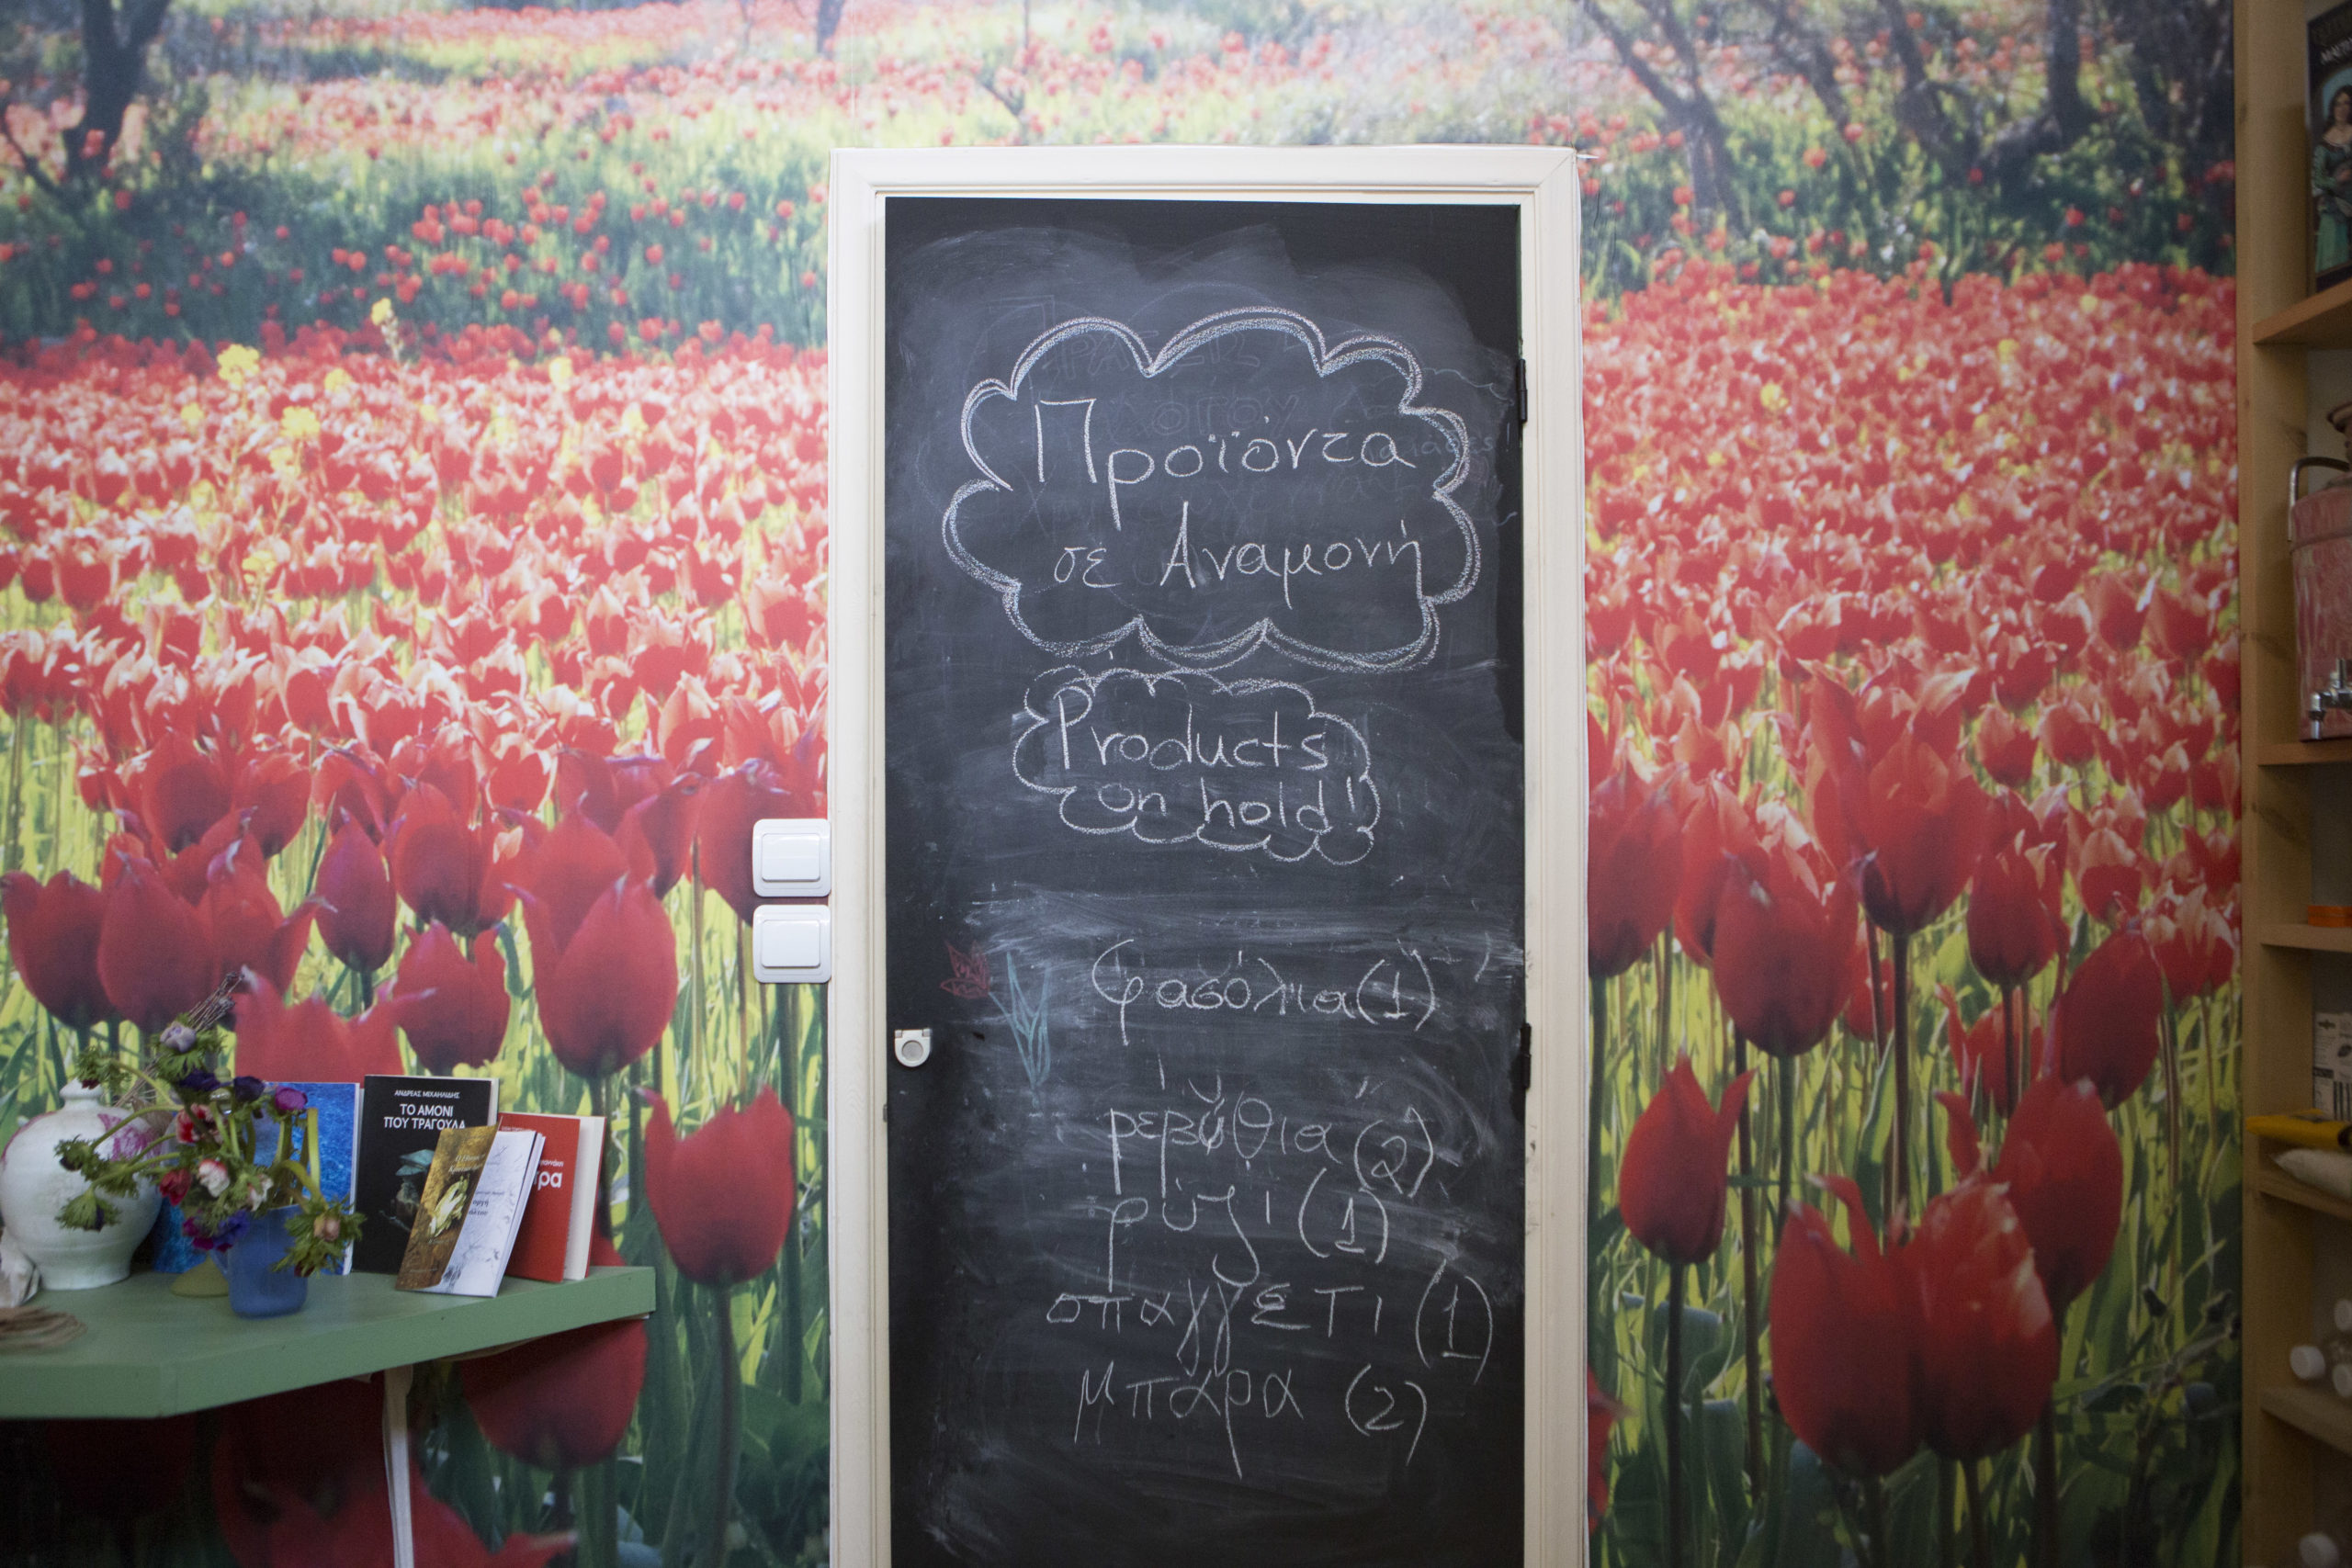 Προϊόντα
σέ Αναμονή
Products
on hold!
φασόλια (1)
ρεβύθια (2)
ρύζι (1)
σπαγγέτι (1)
μπάρα (2)
ΑΝΔΡΕΑΣ ΜΙΧΑΗΛΙΔΗΣ
ΤΟ ΑΜΟΝΙ
ΠΟΥ ΤΡΑΓΟΥΔΑ